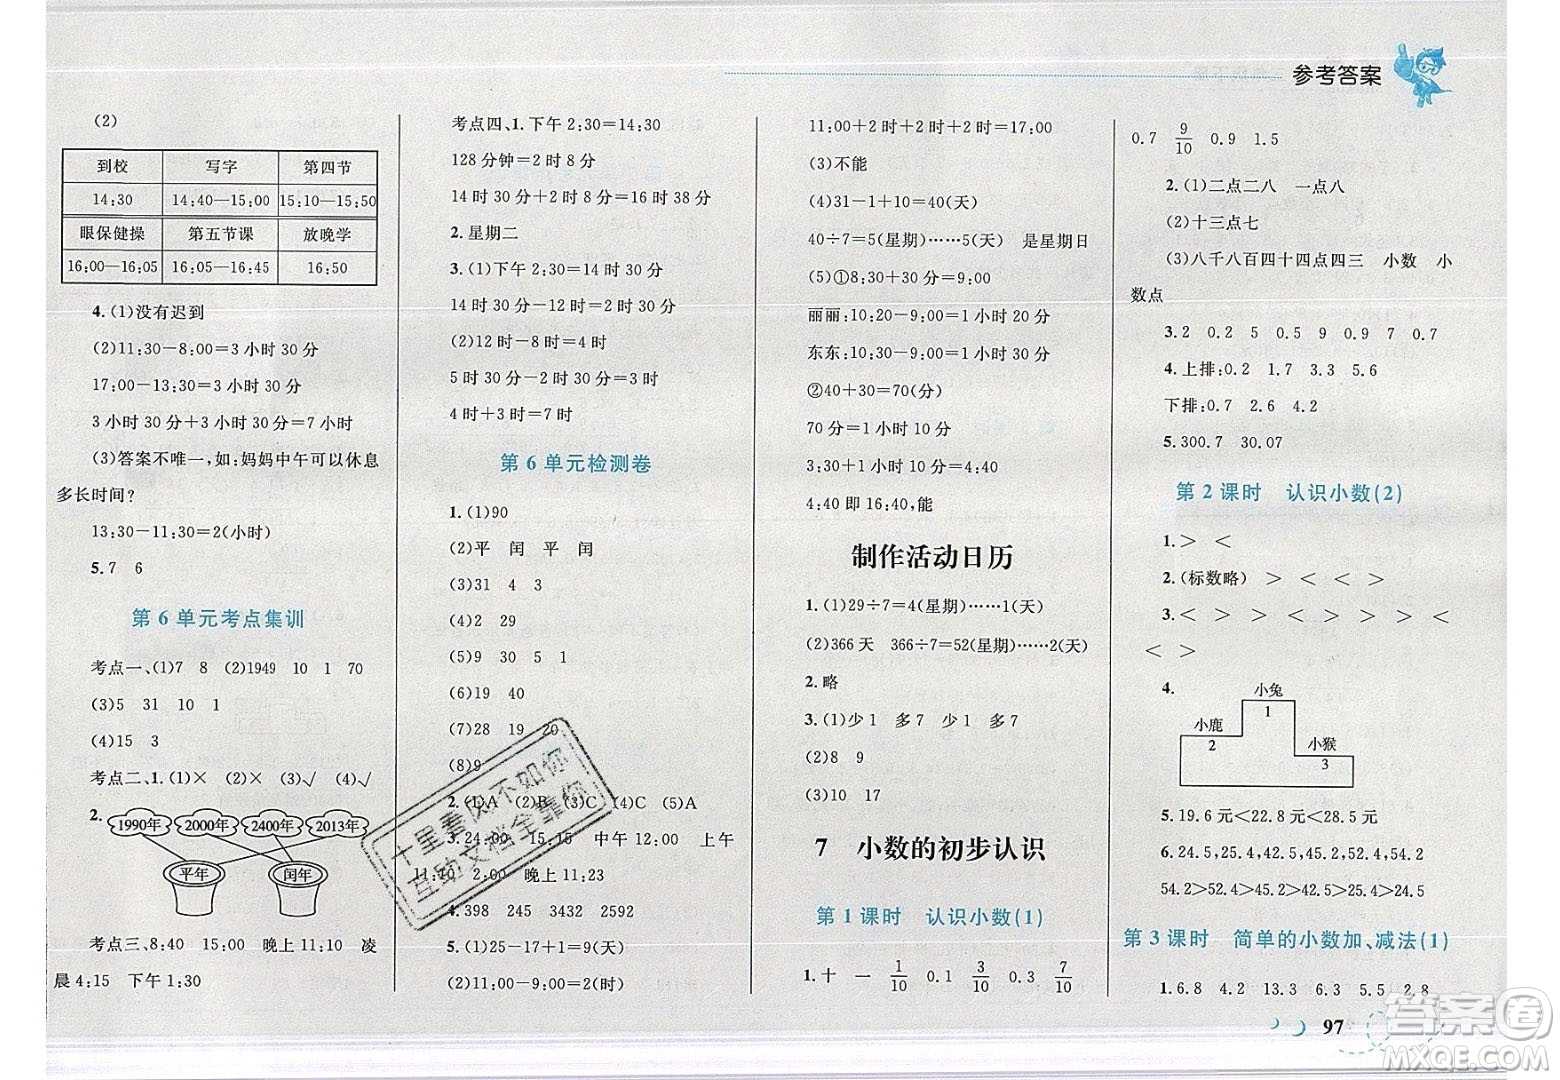 参考答案
(2)
到校 写字 第四节
14:30 14:40—15:00 15:10—15:50
眼保健操 第五节课 放晚学
16:00—16:05 16:05—16:45 16:50
4.(1)没有迟到
(2)11:30－8:00＝3 小时 30 分
17:00－13:30＝3 小时 30 分
3 小时 30 分＋3 小时 30 分＝7 小时
(3)答案不唯一,如:妈妈中午可以休息
多长时间?
13:30－11:30＝2(小时)
5.7 6
第 6 单元考点集训
考点一、(1)7 8 (2)1949 10 1 70
(3)5 31 10 1
(4)15 3
考点二、1.(1)× (2)× (3)√ (4)√
2.
1990年 2000年 2400年 2013年
平年 闰年
考点三、8:40 15:00 晚上 11:10 凌
晨 4:15 下午 1:30
考点四、1.下午 2:30＝14:30
128 分钟＝2 时 8 分
14 时 30 分＋2 时 8 分＝16 时 38 分
2.星期二
3.(1)下午 2 时 30 分＝14 时 30 分
14 时 30 分－12 时＝2 时 30 分
(2)12 时－8 时＝4 时
5 时 30 分－2 时 30 分＝3 时
4 时＋3 时＝7 时
第 6 单元检测卷
1.(1)90
(2)平 闰 平 闰
(3)31 4 3
(4)2 29
(5)9 30 5 1
(6)19 40
(7)28 19 20
(8)9
2.(1)A (2)B (3)C (4)C (5)A
3.24:00 15:15 中午 12:00 上午
11:10 2:00 晚上 11:23
4.398 245 3432 2592
5.(1)25－17＋1＝9(天)
(2)11:00－9:00＝2(时)
十里春风不如你
互助文档全靠你
11:00＋2 时＋2 时＋2 时＝17:00
(3)不能
(4)31－1＋10＝40(天)
40÷7＝5(星期)……5(天) 是星期日
(5)①8:30＋30＝9:00
丽丽:10:20－9:00＝1 小时 20 分
东东:10:30－9:00＝1 小时 30 分
②40＋30＝70(分)
70 分＝1 小时 10 分
3:30＋1 小时 10 分＝4:40
4:40 即 16:40,能
制作活动日历
1.(1)29÷7＝4(星期)……1(天)
(2)366 天 366÷7＝52(星期)……2(天)
2.略
3.(1)少 1 多 7 少 1 多 7
(2)8 9
(3)10 17
7 小数的初步认识
第 1 课时 认识小数(1)
1.十 一 1/10 0.1 3/10 0.3 7/10
0.7 9/10 0.9 1.5
2.(1)二点二八 一点八
(2)十三点七
(3)八千八百四十四点四三 小数 小
数点
3.2 0.2 5 0.5 9 0.9 7 0.7
4.上排:0.2 1.7 3.3 5.6
下排:0.7 2.6 4.2
5.300.7 30.07
第 2 课时 认识小数(2)
1.＞ ＜
2.(标数略) ＞ ＜ ＜ ＞
3.＜ ＞ ＞ ＜ ＞ ＞ ＜ ＜
＜ ＞
4.
小兔
小鹿 1
2 小猴
3
5.19.6 元＜22.8 元＜25.4 元
6.24.5,25.4,42.5,45.2,52.4,54.2
54.2＞52.4＞45.2＞42.5＞25.4＞24.5
第 3 课时 简单的小数加、减法(1)
1.6.8 4.2 13.3 6.3 5.5 2.8
97
答案圈
MXQE.COM